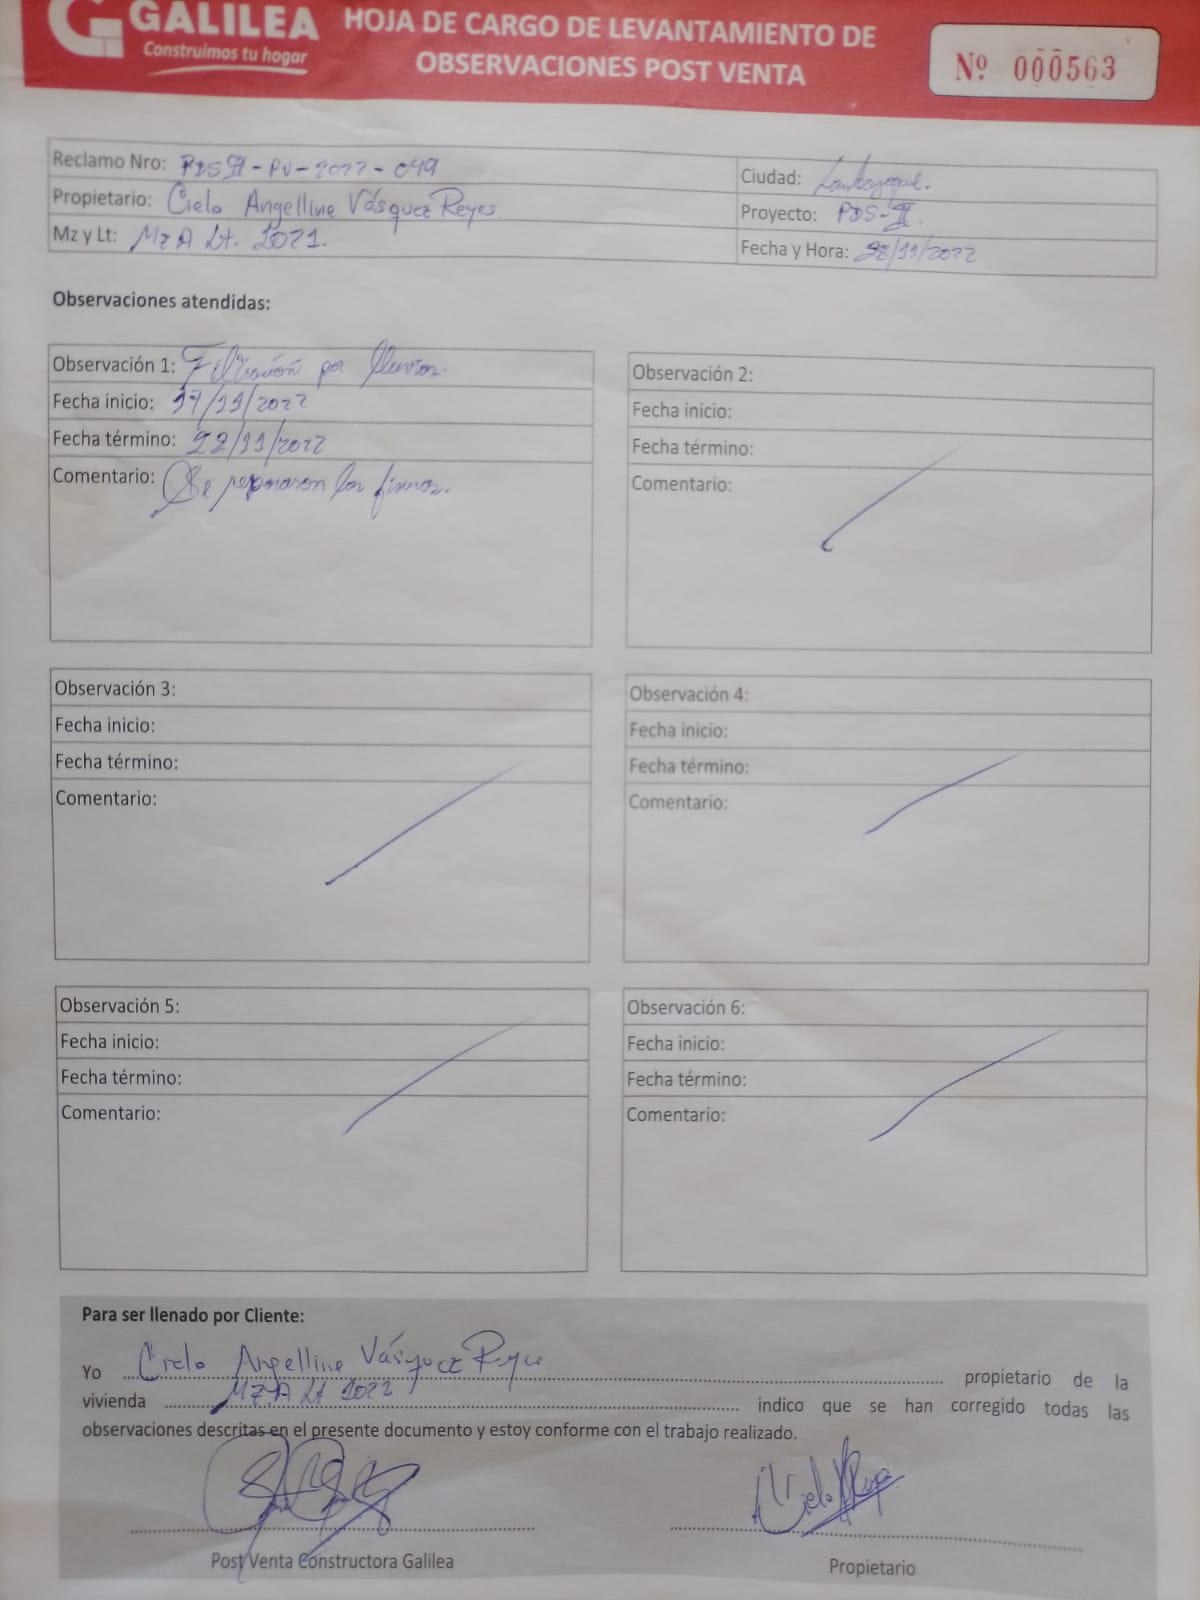 GALILEA
Construimos tu hogar
HOJA DE CARGO DE LEVANTAMIENTO DE
OBSERVACIONES POST VENTA
Nº 000563
Reclamo Nro: PDS II - PV - 2022 - 049
Ciudad: Lambayeque.
Propietario: Cielo Angelline Vásquez Reyes
Proyecto: PDS-II.
Mz y Lt: Mz A Lt. 1021.
Fecha y Hora: 22/11/2022
Observaciones atendidas:
Observación 1: Filtración por lluvias.
Fecha inicio: 17/11/2022
Fecha término: 22/11/2022
Comentario: Se repararon las
Observación 2:
Fecha inicio:
Fecha término:
Comentario:
Observación 3:
Fecha inicio:
Fecha término:
Comentario:
Observación 4:
Fecha inicio:
Fecha término:
Comentario:
Observación 5:
Fecha inicio:
Fecha término:
Comentario:
Observación 6:
Fecha inicio:
Fecha término:
Comentario:
Para ser llenado por Cliente:
Yo Cielo Angelline Vásquez Reyes propietario de la
vivienda MZ. A Lt 1022 indico que se han corregido todas las
observaciones descritas en el presente documento y estoy conforme con el trabajo realizado.
Post Venta Constructora Galilea
Propietario